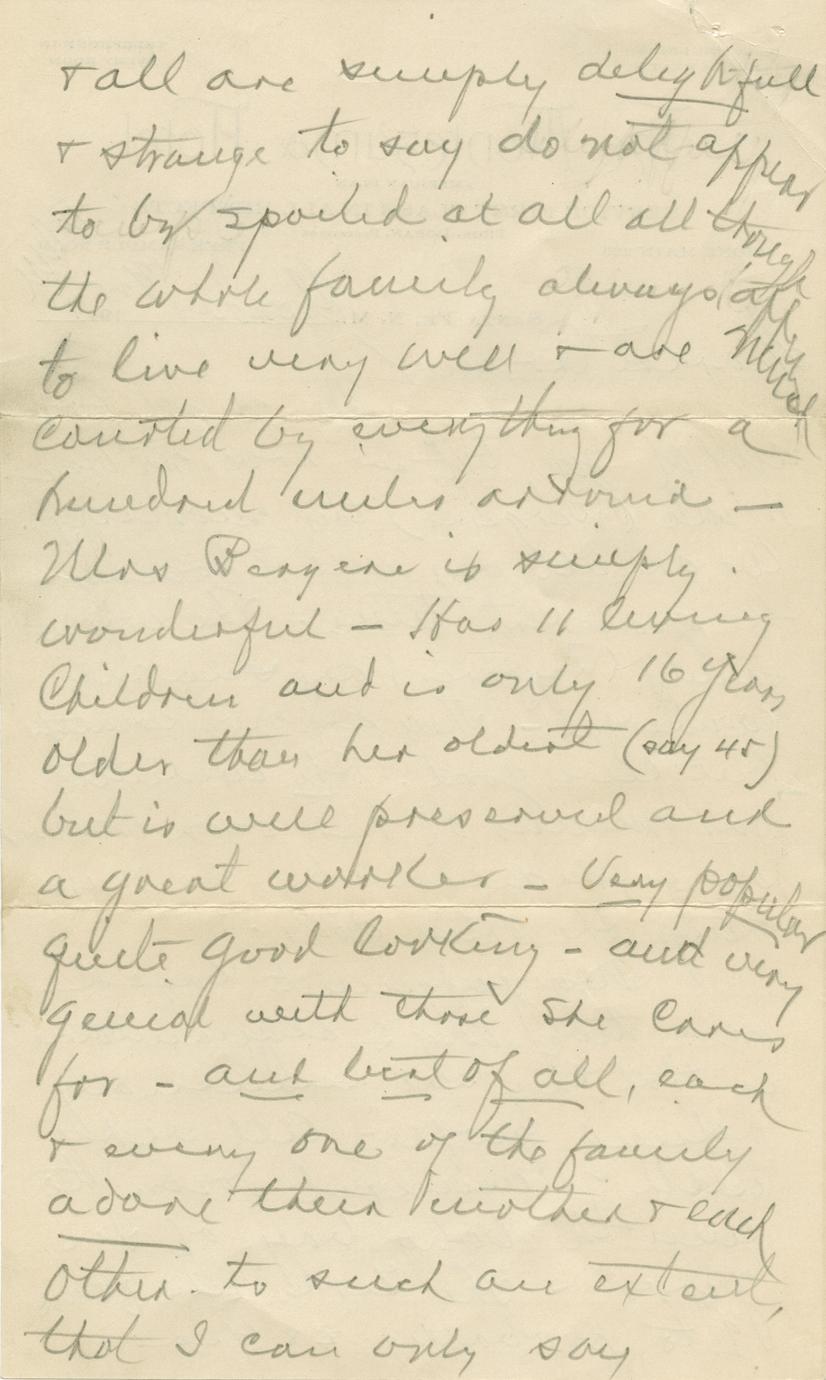 & all are simply delightfull
& strange to say do not appear
to be spoiled at all all though
the whole family always
to live very well & are much
courted by everything for a
hundred miles around —
Mrs Bergere is simply
wonderful — Has 11 living
Children and is only 16 years
older than her oldest (say 45)
but is well preserved and
a great worker — Very popular
quite good looking — and very
genial with those she cares
for — and best of all, each
& every one of the family
adore their mother & each
other to such an extent,
that I can only say